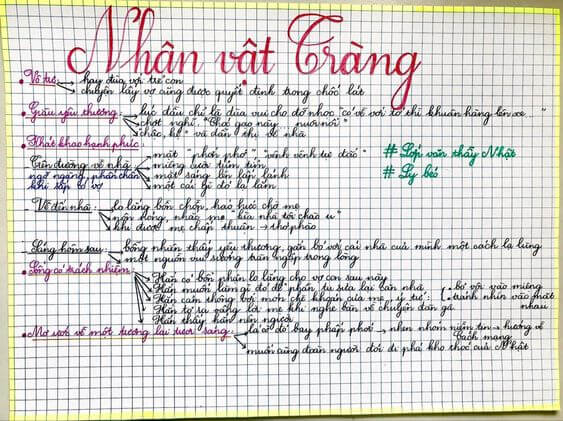 Nhân vật Tràng
• Vô tư: → hay đùa với trẻ con
→ chuyện lấy vợ cũng được quyết định trong chốc lát
• Giàu yêu thương: → lúc đầu chỉ là đùa vui cho đỡ nhọc "có về với tớ thì khuân hàng lên xe..."
→ chợt nghĩ: "Thóc gạo này nuôi nổi"
→ "chặc, kệ" và dẫn thị về nhà
• Khát khao hạnh phúc:
- Trên đường về nhà → mặt "phớn phở", "vênh vênh tự đắc"
ngỡ ngàng, phấn chấn → miệng cười tủm tỉm
khi sắp có vợ → mắt sáng lên lấp lánh
→ một cái gì đó lạ lắm
# Lớp văn thầy Nhật
# Ly béo
- Về đến nhà: → lo lắng bồn chồn, háo hức chờ mẹ
→ nôn nóng, nhắc mẹ "kìa nhà tôi chào u"
→ khi được mẹ chấp thuận → thở phào
- Sáng hôm sau: → bỗng nhiên thấy yêu thương, gắn bó với cái nhà của mình một cách lạ lùng
→ một nguồn vui sướng tràn ngập trong lòng
• Sống có trách nhiệm → Hắn có bổn phận lo lắng cho vợ con sau này
→ Hắn muốn làm gì đó để dự phần tu sửa lại căn nhà
→ Hắn cảm thông với món chè khoán của mẹ, ý tứ: • bỏ vội vào miệng
• tránh nhìn vào mặt nhau
→ Hắn tỏ ra vâng lời mẹ khi nghe bàn về chuyện đan gà
→ Hắn thấy hắn nên người
• Mơ ước về một tương lai tươi sáng: → lá cờ đỏ bay phấp phới → nhen nhóm niềm tin → hướng về cách mạng
→ muốn cùng đoàn người đói đi phá kho thóc của Nhật